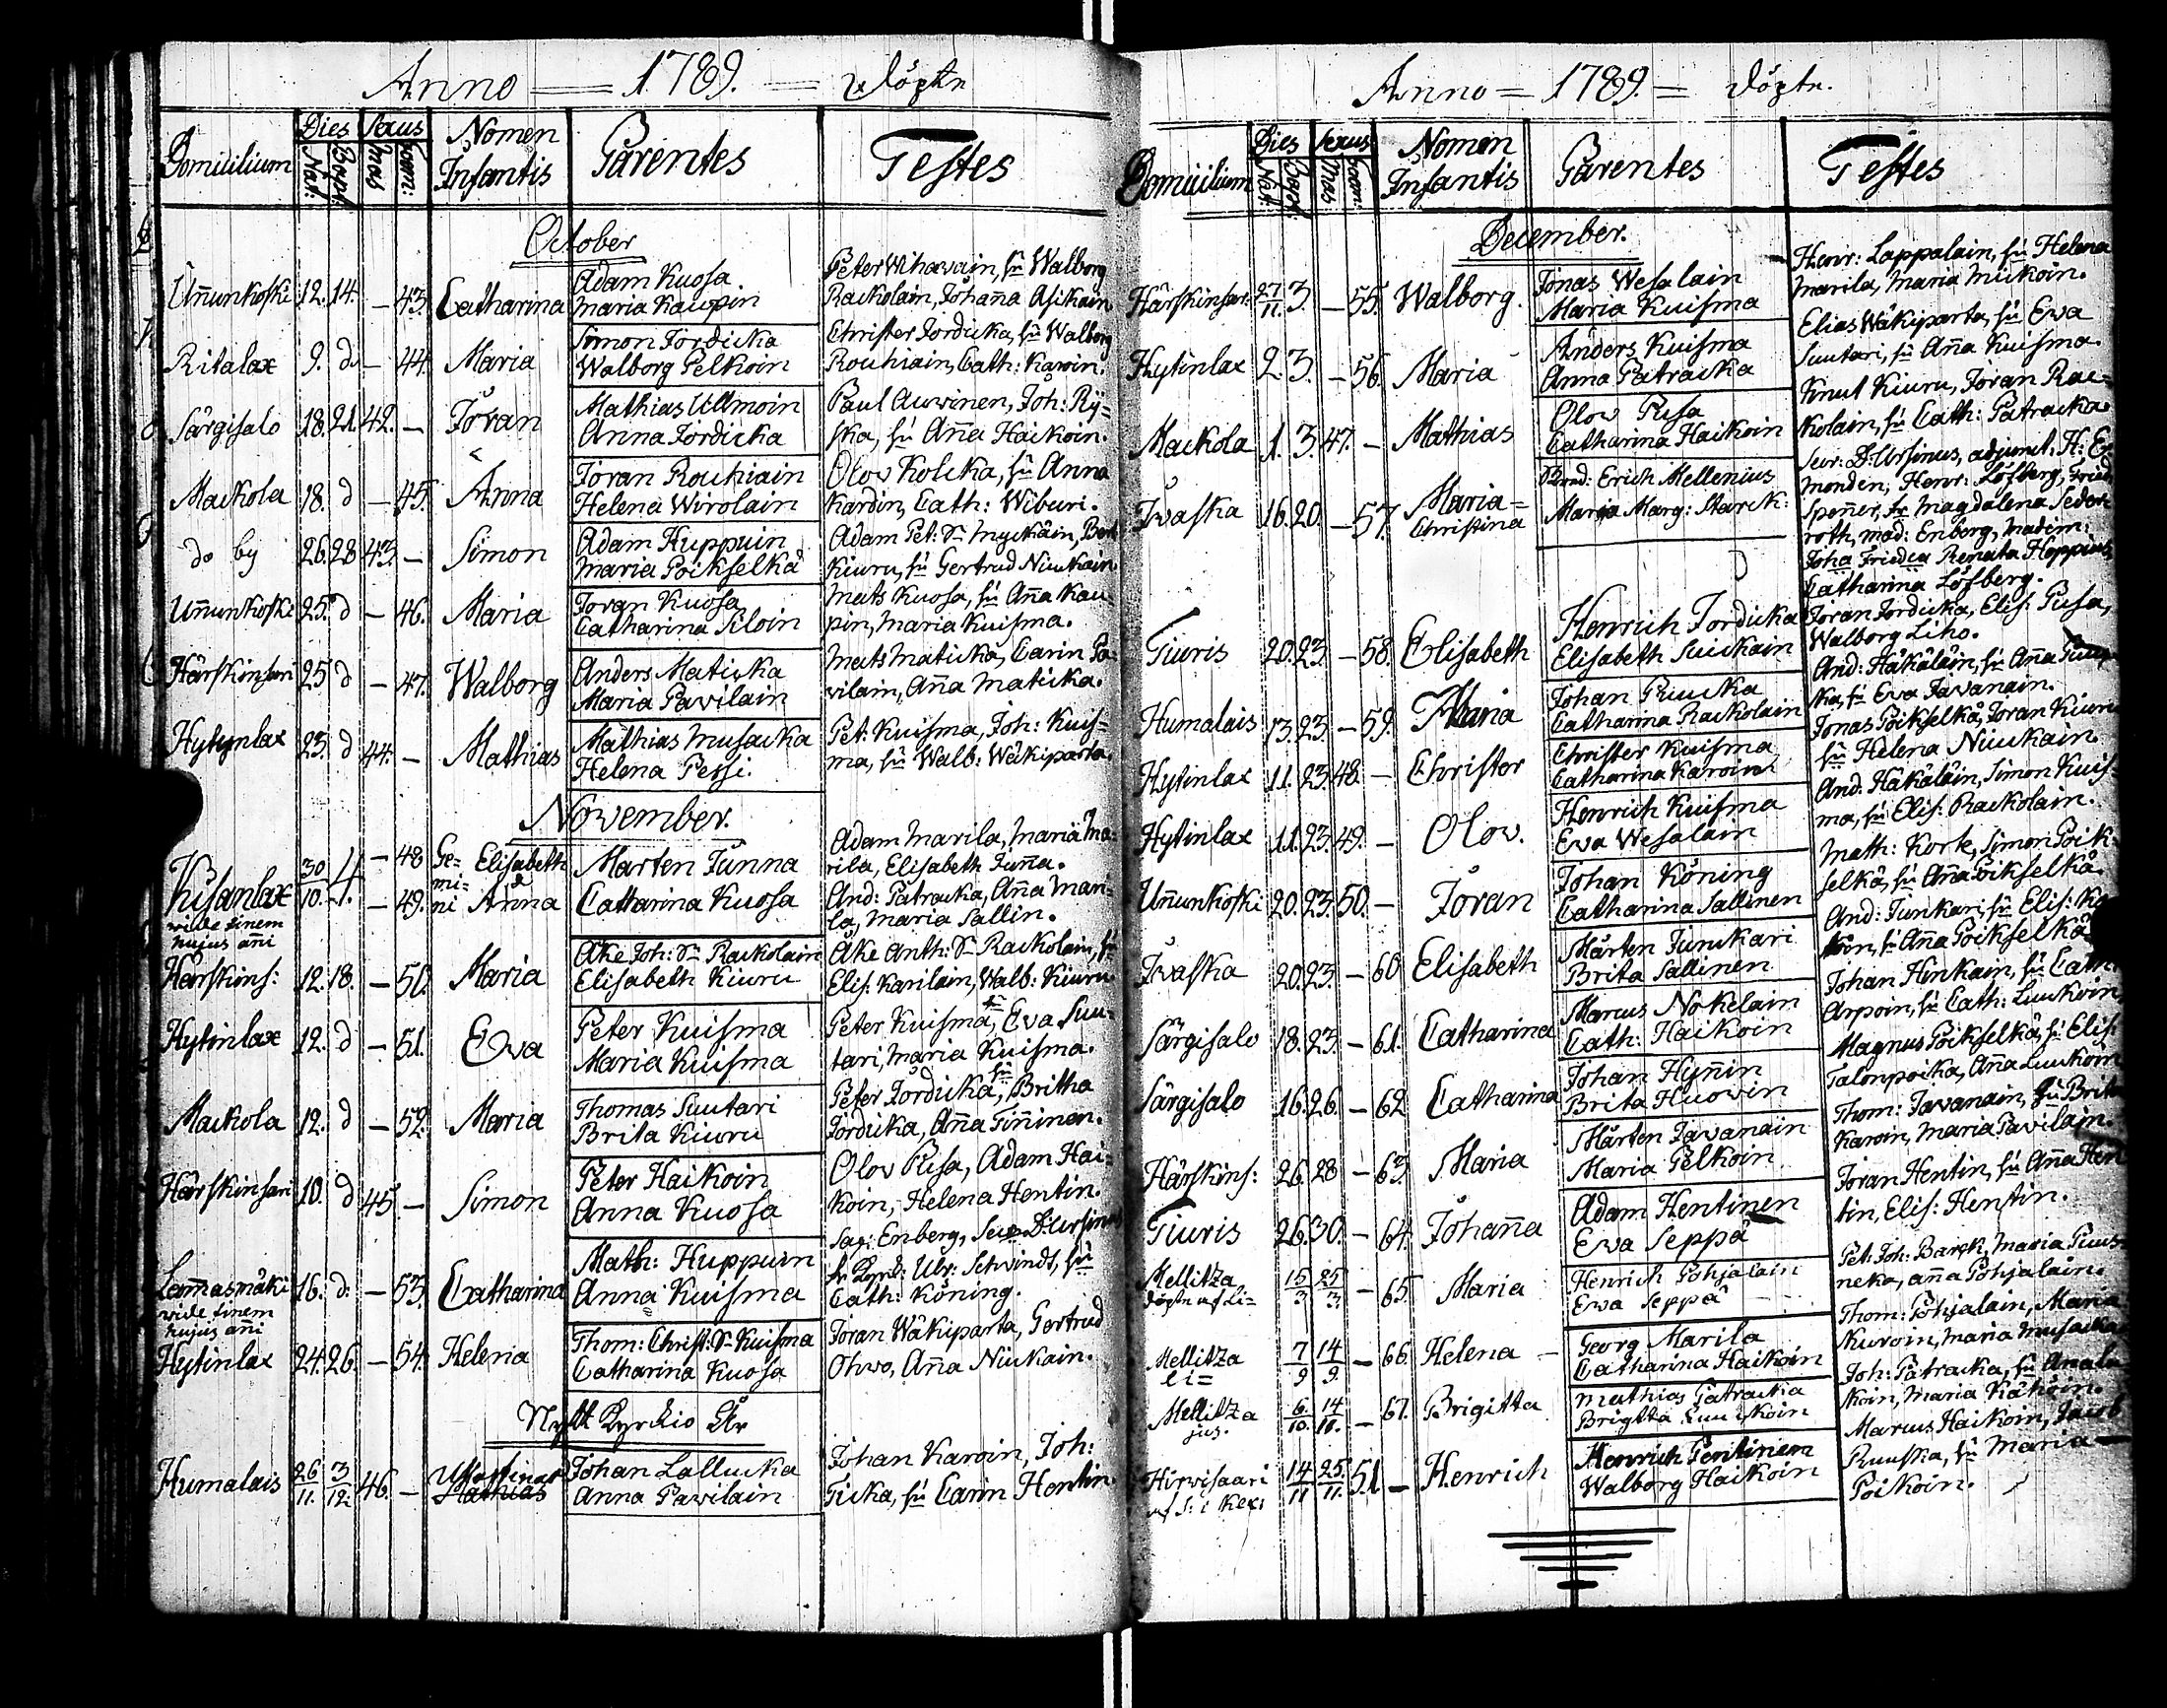 Anno = 1789. = döpte
Domicilium Dies Sexus Nomen Infantis Parentes Testes
Nat: Bapt: Mas Foem:
October
Uñunkoski 12. 14. — 43. Catharina Adam Kuosa. Maria Kaupin
Peter Wihawain, hu Walborg
Rackolain, Johaña Asikain
Ritalax 9. d. — 44. Maria Simon Jordicka Walborg Pelkoin
Christer Jordicka, hu Walborg
Rouhiain, Cath: Karoin.
Särgisalo 18. 21. 42. — Jöran Mathias Ullmoin Anna Jordicka
Paul Auwinen, Joh: Ry=
ska, hu Aña Haikoin.
Mackola 18. d — 45. Anna Jöran Rouhiain Helena Wirolain
Olov Kolcka, hu Anna
Kardin, Cath: Wiburi.
do by 26. 28 43. — Simon Adam Huppuin Maria Poikselkä
Adam Pet: Sn Myckäin,
Kiuru, hu Gertrud Niukain.
Uñunkoski 25. d — 46. Maria Jöran Kuosa Catharina Siloin
Mats Kuosa, hu Aña Kau=
pin, Maria Kuisma.
Härskinsari 25 d — 47. Walborg Anders Maticka Maria Pavilain
Mats Maticka, Carin Pa=
vilain, Aña Maticka.
Hytynlax 23. d 44. — Mathias Mathias Musacka Helena Pessi.
Pet: Kuisma, Joh: Kuis=
ma, hu Walb: Wäkiparta.
November.
Kisanlax 30/10. 4/1. — 48 Ge= Elisabeth Mårten Junna
— 49. mi= ni & Anna Catharina Kuosa
vide finem
hujus añi
Adam Marila, Maria Ma=
rila, Elisabeth Juña.
And: Patracka, Aña Mari=
la, Maria Sallin.
Härskins: 12. 18. — 50. Maria Åke Joh: Sn Rackolain Elisabeth Kiuru
Åke Anth: Sn Rackolain, hu
Elis: Karilain, Walb: Kiuru
Hytinlax 12. d — 51. Ewa Peter Kuisma Maria Kuisma
Peter Kuisma, hu Eva Suu=
tari, Maria Kuisma.
Mackola 12. d — 52. Maria Thomas Suutari Brita Kiuru
Peter Jördicka, hu Britha
Jördicka, Aña Tiñinen.
Härskinsari 10. d 45. — Simon Peter Haikoin Anna Kuosa
Olov Pusa, Adam Hai=
koin, Helena Hentin.
Lam̃asmäki 16. d. — 53. Catharina Math: Huppuin Anna Kuisma
vide finem
hujus añi
Enberg, D: Ursinus
Schvindt, hu
Cath: Köning.
Hytinlax 24. 26. — 54. Helena Thom: Christ: Sn Kuisma Catharina Kuosa
Jöran Wäkiparta, Gertrud
Ohwo, Aña Niukain.
Nytt Kyrckio År
Humalais 26/11. 3/12. 46. — Mathias Johan Lallucka Anna Pavilain
Johan Karoin, Joh:
Ticka, hu Carin Hentin
Anno = 1789. = döpte.
Domicilium Dies Sexus Nomen Infantis Parentes Testes
Nat: Bapt: Mas Foem:
December.
Härskinsar: 27/11. 3. — 55. Walborg. Jonas Wesalain Maria Kuisma
Henr: Lappalain, hu Helena
Marila, Maria Mickoin.
Hytinlax 2. 3. — 56. Maria Anders Kuisma Anna Patracka
Elias Wäkiparta, hu Ewa
Suutari, hu Aña Kuisma.
Mackola 1. 3. 47. — Mathias Olov Pusa Catharina Haikoin
Knut Kiuru, Jöran Rac=
kolain, hu Cath: Patracka.
Iwaska 16. 20. — 57. Maria= Christina Erich Mellenius Maria Marg: Starck:
D: Ursinus, adjunct. H:
Henr: Löfberg,
Magdalena
mad: Enberg, Madem:
Renata Hoppius,
Catharina Löfberg.
Tiuris 20. 23. — 58. Elisabeth Henrich Jordicka Elisabeth Suickain
Jöran Jordicka, Elis: Pusa,
Walborg Liho.
Humalais 13. 23. — 59. Maria Johan Ruucka Catharina Rackolain
And: Häkäläin, hu Aña
ka, hu Eva Javanain.
Hytinlax 11. 23. 48. — Christer Christer Kuisma Catharina Karoin
Jonas Poikselkä, Jöran Kiuru
hu Helena Niukain.
Hytinlax 11. 23. 49. — Olov. Henrich Kuisma Eva Wesalain
And: Häkäläin, Simon Kuis=
ma, hu Elis: Rackolain.
Uñunkoski 20. 23. 50. — Jöran Johan Köning Catharina Sallinen
Math: Korte, Simon Poik=
selkä, hu Aña Poikselkä.
Iwaska 20. 23. — 60 Elisabeth Mårten Junckari Brita Sallinen
And: Junkari, hu Elis:
hu Aña Poikselkä
Särgisalo 18. 23. — 61. Catharina Marcus Nokelain Cath: Haikoin
Johan Henkain, hu Cath:
Arpoin, hu Cath: Luukoin
Särgisalo 16. 26. — 62 Catharina Johan Hyñin Brita Huowin
Magnus Poikselkä, hu Elis:
Talonpoika, Aña Luukoin
Härskins: 26. 28 — 63. Maria Mårten Javanain Maria Pelkoin
Thom: Javanain, hu Brita
Karoin, Maria Pavilain.
Tiuris 26. 30. — 64. Johaña Adam Hentinen Ewa Seppä
Jöran Hentin, hu Aña Hen
tin, Elis: Hentin.
Mellitza 15/3 25/3. — 65. Maria Henrich Pohjalain Ewa Seppä
döpte af Li=
Pet: Joh: Barck, Maria Puus
neka, aña Pohjalain.
Mellitza 7/9 14/9. — 66. Helena — Georg Marila Catharina Haikoin
li=
Thom: Pohjalain, Maria
Kuroin, Maria Musacka
Mellitza 6./10. 14/10. — 67. Brigitta Mathias Patracka Brigitta Luuckoin
jus.
Joh: Patracka, hu
koin, Maria Käköin.
Hirvisaari 14/11 25./11. 51. — Henrich Henrich Pentinen Walborg Haikoin
Marcus Haikoin, Jacob
Ruuska, hu Maria —
Poikoin.